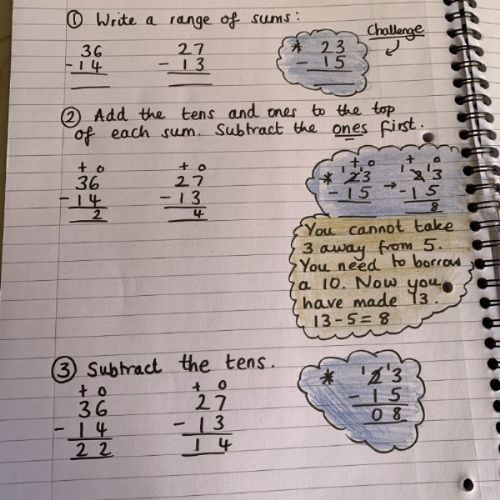 ① Write a range of sums:
Challenge
36
-14
27
-13
* 23
- 15
② Add the tens and ones to the top
of each sum. Subtract the ones first.
t o
36
-14
2
t o
27
-13
4
t o
* ¹2̸¹3
- 15
→
t o
¹2̸¹3
-15
8
You cannot take
3 away from 5.
You need to borrow
a 10. Now you
have made 13.
13-5=8
③ Subtract the tens.
t o
36
- 14
22
t o
27
- 13
14
* ¹2̸¹3
- 15
08